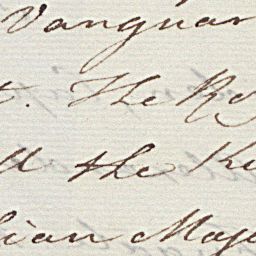 Vanguar
t. The Ro
ll the Ki
lian Maje